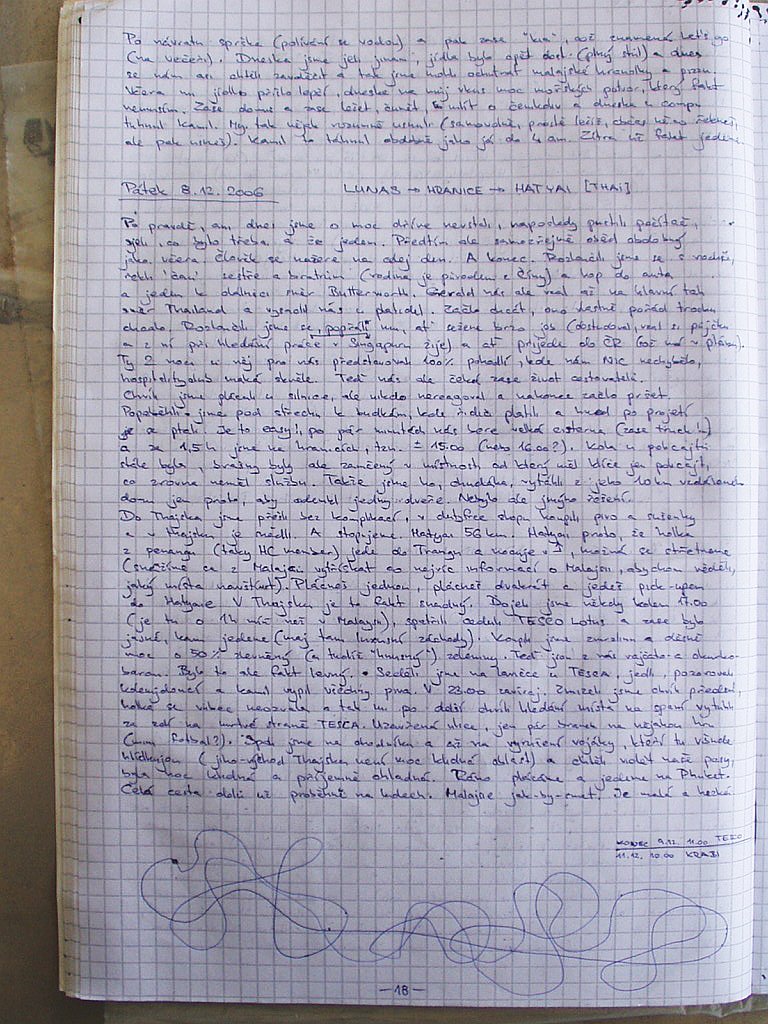 Po návratu sprška (polívání se vodou) a pak zase "kia", což znamená Let's go
(na večeři). Dneska jsme jeli jinam, jídla bylo opět dost (plný stůl) a dnes
se nám asi chtěli zavděčit a tak jsme mohli ochutnat malajské hranolky a
Včera mi jídlo přišlo lepší, dneska na můj vkus moc mořských potvor, který fakt
nemusím. Zase domů a zase ležet, čumět, o čemkoliv a dneska u compu
tuhnul Kamil. My tak nějak rozumně usnuli (samovolně, prostě ležíš,
ale pak usneš). Kamil to táhnul obdobně jako já do 4 am. Zítra už fakt jedeme.
Pátek 8.12. 2006 LUNAS → HRANICE → HATYAI [THAI]
Po pravdě, ani dnes jsme o moc dříve nevstali, naposledy pustili počítač,
co bylo třeba a že jedem. Předtím ale samozřejmě oběd obdobný
jako včera. Člověk se nažere na celej den. A konec. Rozloučili jsme se s rodiči,
řekli "čau" sestře a bratrům (rodina je původem z Číny) a hop do auta
a jedem k dálnici směr Butterworth. Gerald nás ale vzal až na hlavní tah
směr Thailand a vysadil nás u Začlo chcát, ono vlastně pořád trochu
chcalo. Rozloučili jsme se, popřáli mu, ať sežene brzo job (dostudoval, vzal si půjčku
a z ní při hledání práce v Singapuru žije) a ať přijede do ČR (což má v plánu).
Ty 2 noci u něj pro nás představovali 100% pohodlí, kde nám NIC nechybělo,
hospitalityclub maká skvěle. Teď nás ale čeká zase život cestovatelů.
Chvíli jsme plácali u silnice, ale nikdo nereagoval a nakonec začlo pršet.
Popoběhli jsme pod střechu k budkám, kde řidiči platili a hned po projetí
je se ptali. Je to easy!, po pár minutách nás bere velká cisterna (zase truck!)
a za 1,5h jsme na hranicích, tzn. ± 15:00 (nebo 16:00?). Kola u policajtů
stále byla, brašny byly ale zamčený v místnosti od který měl klíče jen policajt,
co zrovna neměl službu. Takže jsme ho, chudáka, vytáhli z jeho 10km vzdáleného
domu jen proto, aby odemkl jediny dveře. Nebylo ale jinýho řešení.
Do Thajska jsme přešli bez komplikací, v dutyfree shopu koupili pivo a sušenky
a v thajsku je snědli. A stopujeme. Hatyai 56 km. Hatyai proto, že holka
z penangu (taky HC member) jede do Trangu a nocuje v ↑, možná se střetneme
(snažíme se z Malajců vytřískat co nejvíc informací o Malajsii, abychom věděli,
jaký místa navštívit). Plácneš jednou, plácneš dvakrát a jedeš pick-upem
do Hatyaie. V Thajsku je to fakt snadný. Dojeli jsme někdy kolem 17.00
(je tu o 1h míň než v Malajsii), spatřili ceduli TESCO Lotus a zase bylo
jasné, kam jedeme (maj tam luxusní záchody). Koupili jsme zmrzlinu a děsně
moc o 50% zlevněný (a tudíž "hnusný") zeleniny. Teď jsou z nás vajíčko a okurko-
baron. Bylo to ale fakt levný. Seděli jsme na lavičce u TESCA, jedli, pozorovali
kolemjdoucí a Kamil vypil všechny piva. V 23.00 zavíraj. Zmizeli jsme chvíli předtím,
holka se vůbec neozvala a tak my po delší chvíli hledání místa na spaní vytuhli
za zdí na mrtvé straně TESCA. Uzavřená ulice, jen pár branek na nějakou hru
(mini fotbal?). Spali jsme na chodníku a až na vyrušení vojáky, kteří tu všude
hlídkujou (jiho-východ Thajska není moc klidná oblast) a chtěli vidět naše pasy,
byla noc klidná a příjemně chladná. Ráno plácáme a jedeme na Phuket.
Celá cesta dolů už proběhne na kolech. Malajsie jak-by-smet. Je malá a hezká
KONEC 9.12. 11.00 TESCO
11.12. 20.00 KRABI
— 18 —